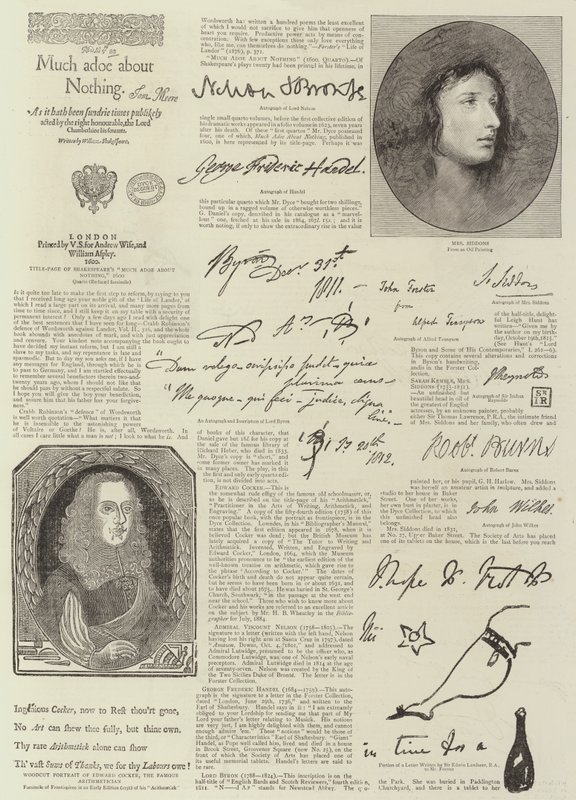 Much adoe about
Nothing.
As it hath been sundrie times publikely
acted by the right honourable, the Lord
Chamberlaine his seruants.
Written by William Shakespeare.
LONDON
Printed by V.S. for Andrew Wise, and
William Aspley.
1600.
TITLE-PAGE OF SHAKESPEARE'S "MUCH ADOE ABOUT
NOTHING," 1600
Quarto (Reduced facsimile)
Is it quite too late to make the first step to reform, by saying to you
that I received long ago your noble gift of the 'Life of Landor,' of
which I read a large part on its arrival, and many more pages from
time to time since, and I still keep it on my table with a security of
permanent interest? Only a few days ago I read with delight one
of the best sentences that I have seen for long—Crabb Robinson's
defence of Wordsworth against Landor, Vol. II., 316, and the whole
book abounds with anecdotes of mark, and with just appreciation
and censure. Your kindest note accompanying the book ought to
have decided my instant reform, but I am still
slave to my tasks, and my repentance is late and
spasmodic. But to day my son asks me, if I have
any messages for England, through which he is
to go to Germany, and I am startled effectually
to remember several benefactors therein two-and-
twenty years ago, whom I should not like that
he should pass by without a respectful salute. So
I hope you will give the boy your benediction,
and assure him that his father was your forgiven
debtor."
Crabb Robinson's "defence" of Wordsworth
is well worth quotation.—"What matters it that
he is insensible to the astonishing powers
of Voltaire or Goethe? He is, after all, Wordsworth. In
all cases I care little what a man is not; I look to what he is. And
Ingenious Cocker, now to Rest thou'rt gone,
No Art can shew thee fully, but thine own.
Thy rare Arithmetick alone can show
Th' vast Sums of Thanks, we for thy Labours owe!
WOODCUT PORTRAIT OF EDWARD COCKER, THE FAMOUS
ARITHMETICIAN
Facsimile of Frontispiece in an Early Edition (1703) of his "Arithmetick"
Wordsworth has written a hundred poems the least excellent
of which I would not sacrifice to give him that openness of
heart you require. Productive power acts by means of con-
centration. With few exceptions those only love everything
who, like me, can themselves do nothing."—Forster's "Life of
Landor" (1876), p. 371.
"MUCH ADOE ABOUT NOTHING" (1600, QUARTO).—Of
Shakespeare's plays twenty had been printed in his lifetime, in
Nelson & Bronte
Autograph of Lord Nelson
single small quarto volumes, before the first collective edition of
his dramatic works appeared in a folio volume in 1623, seven years
after his death. Of these "first quartos" Mr. Dyce possessed
four, one of which, Much Adoe About Nothing, published in
1600, is here represented by its title-page. Perhaps it was
George Frideric Handel.
Autograph of Handel
this particular quarto which Mr. Dyce "bought for two shillings,
bound up in a ragged volume of otherwise worthless pieces."
G. Daniel's copy, described in his catalogue as a "marvel-
lous" one, fetched at his sale in 1864, 267l. 15s.; and it is
worth noting, if only to show the extraordinary rise in the value
Byron
Decr. 31st
1811.—
An Autograph and Inscription of Lord Byron
of books of this character, that
Daniel gave but 18l. for his copy at
the sale of the famous library of
Richard Heber, who died in 1833.
Mr. Dyce's copy is "short," and
some former owner has marked it
in many places. The play, in this
the first and only early quarto edi-
tion, is not divided into acts.
EDWARD COCKER.—This is
the somewhat rude effigy of the famous old schoolmaster, or,
as he is described on the title-page of his "Arithmetick,"
"Practitioner in the Arts of Writing, Arithmetick, and
Engraving." A copy of the fifty-fourth edition (1758) of this
once popular book, with the portrait as frontispiece, is in the
Dyce Collection. Lowndes, in his "Bibliographer's Manual,"
states that the first edition appeared in 1678, when it is
believed Cocker was dead; but the British Museum has
lately acquired a copy of "The Tutor to Writing and
Arithmetick, Invented, Written, and Engraved by
Edward Cocker," London, 1664, which the Museum
authorities pronounce to be "the earliest edition of the
well-known treatise on arithmetic, which gave rise to
the phrase 'According to Cocker.'" The dates of
Cocker's birth and death do not appear quite certain,
but he seems to have been born in or about 1631, and
to have died about 1675. He was buried in St. George's
Church, Southwark, "in the passage at the west end
near the school." Those who wish to know more about
Cocker and his works are referred to an excellent article
on the subject by Mr. H. B. Wheatley in the Biblio-
grapher for July, 1884.
ADMIRAL VISCOUNT NELSON (1758—1805).—The
signature to a letter (written with the left hand, Nelson
having lost his right arm at Santa Cruz in 1797), dated
"Amazon, Downs, Oct. 4, 1801," and addressed to
Admiral Lutwidge, presumed to be the officer who, as
Commodore Lutwidge, was one of Nelson's early naval
preceptors. Admiral Lutwidge died in 1814 at the age
of seventy-seven. Nelson was created by the King of
the Two Sicilies Duke of Bronté. The letter is in the
Forster Collection.
GEORGE FREDERIC HANDEL (1684—1759).—This auto-
graph is the signature to a letter in the Forster Collection,
dated "London, June 29th, 1736," and written to the
Earl of Shaftesbury. Handel says in it: "I am extremely
obliged to your Lordship for sending me that part of My
Lord your father's letter relating to Musick. His notions
are very just, I am highly delighted with them, and cannot
enough admire 'em." These "notions" would be those of
the third, or "Characteristics" Earl of Shaftesbury. "Giant"
Handel, as Pope well called him, lived and died in a house
in Brook Street, Grosvenor Square (now No. 25), on the
front of which the Society of Arts has placed one of
its useful memorial tablets. Handel's letters are said to
be rare.
LORD BYRON (1788—1824).—This inscription is on the
half-title of "English Bards and Scotch Reviewers," fourth edition,
1811. "N——d A" stands for Newstead Abbey. The
MRS. SIDDONS
From an Oil Painting
S. Siddons
Autograph of Mrs. Siddons
John Forster
from
Alfred Tennyson
Autograph of Alfred Tennyson
of the half-title, delight-
ful Leigh Hunt has
written—"Given me by
the author on my birth-
day, October 19th, 1815."
(See Hunt's "Lord
Byron and Some of His Contemporaries," I. 261—6).
This copy contains several alterations and corrections
in Byron's handwriting,
and is in the Forster Col-
lection.
SARAH KEMBLE, MRS.
SIDDONS (1755—1831).
—An unfinished but
beautiful head in oil of
the greatest of English
actresses, by an unknown artist, probably
either Sir Thomas Lawrence, P.R.A., the intimate friend
of Mrs. Siddons and her family, who often drew and
JReynolds
Autograph of Sir Joshua
Reynolds
Robt. Burns
Autograph of Robert Burns
painted her, or his pupil, G. H. Harlow. Mrs. Siddons
was herself an amateur artist in sculpture, and added a
studio to her house in Baker
Street. One of her works,
her own bust in plaster, is in
the Dyce Collection, to which
this unfinished head also
belongs.
John Wilkes
Autograph of John Wilkes
Mrs. Siddons died in 1831,
at No. 27, Upper Baker Street. The Society of Arts has placed
one of its tablets on the house, which is the last before you reach
in time for a
Portion of a Letter Written by Sir Edwin Landseer, R.A.,
to Mr. Forster
the Park. She was buried in Paddington
Churchyard, and there is a tablet to her